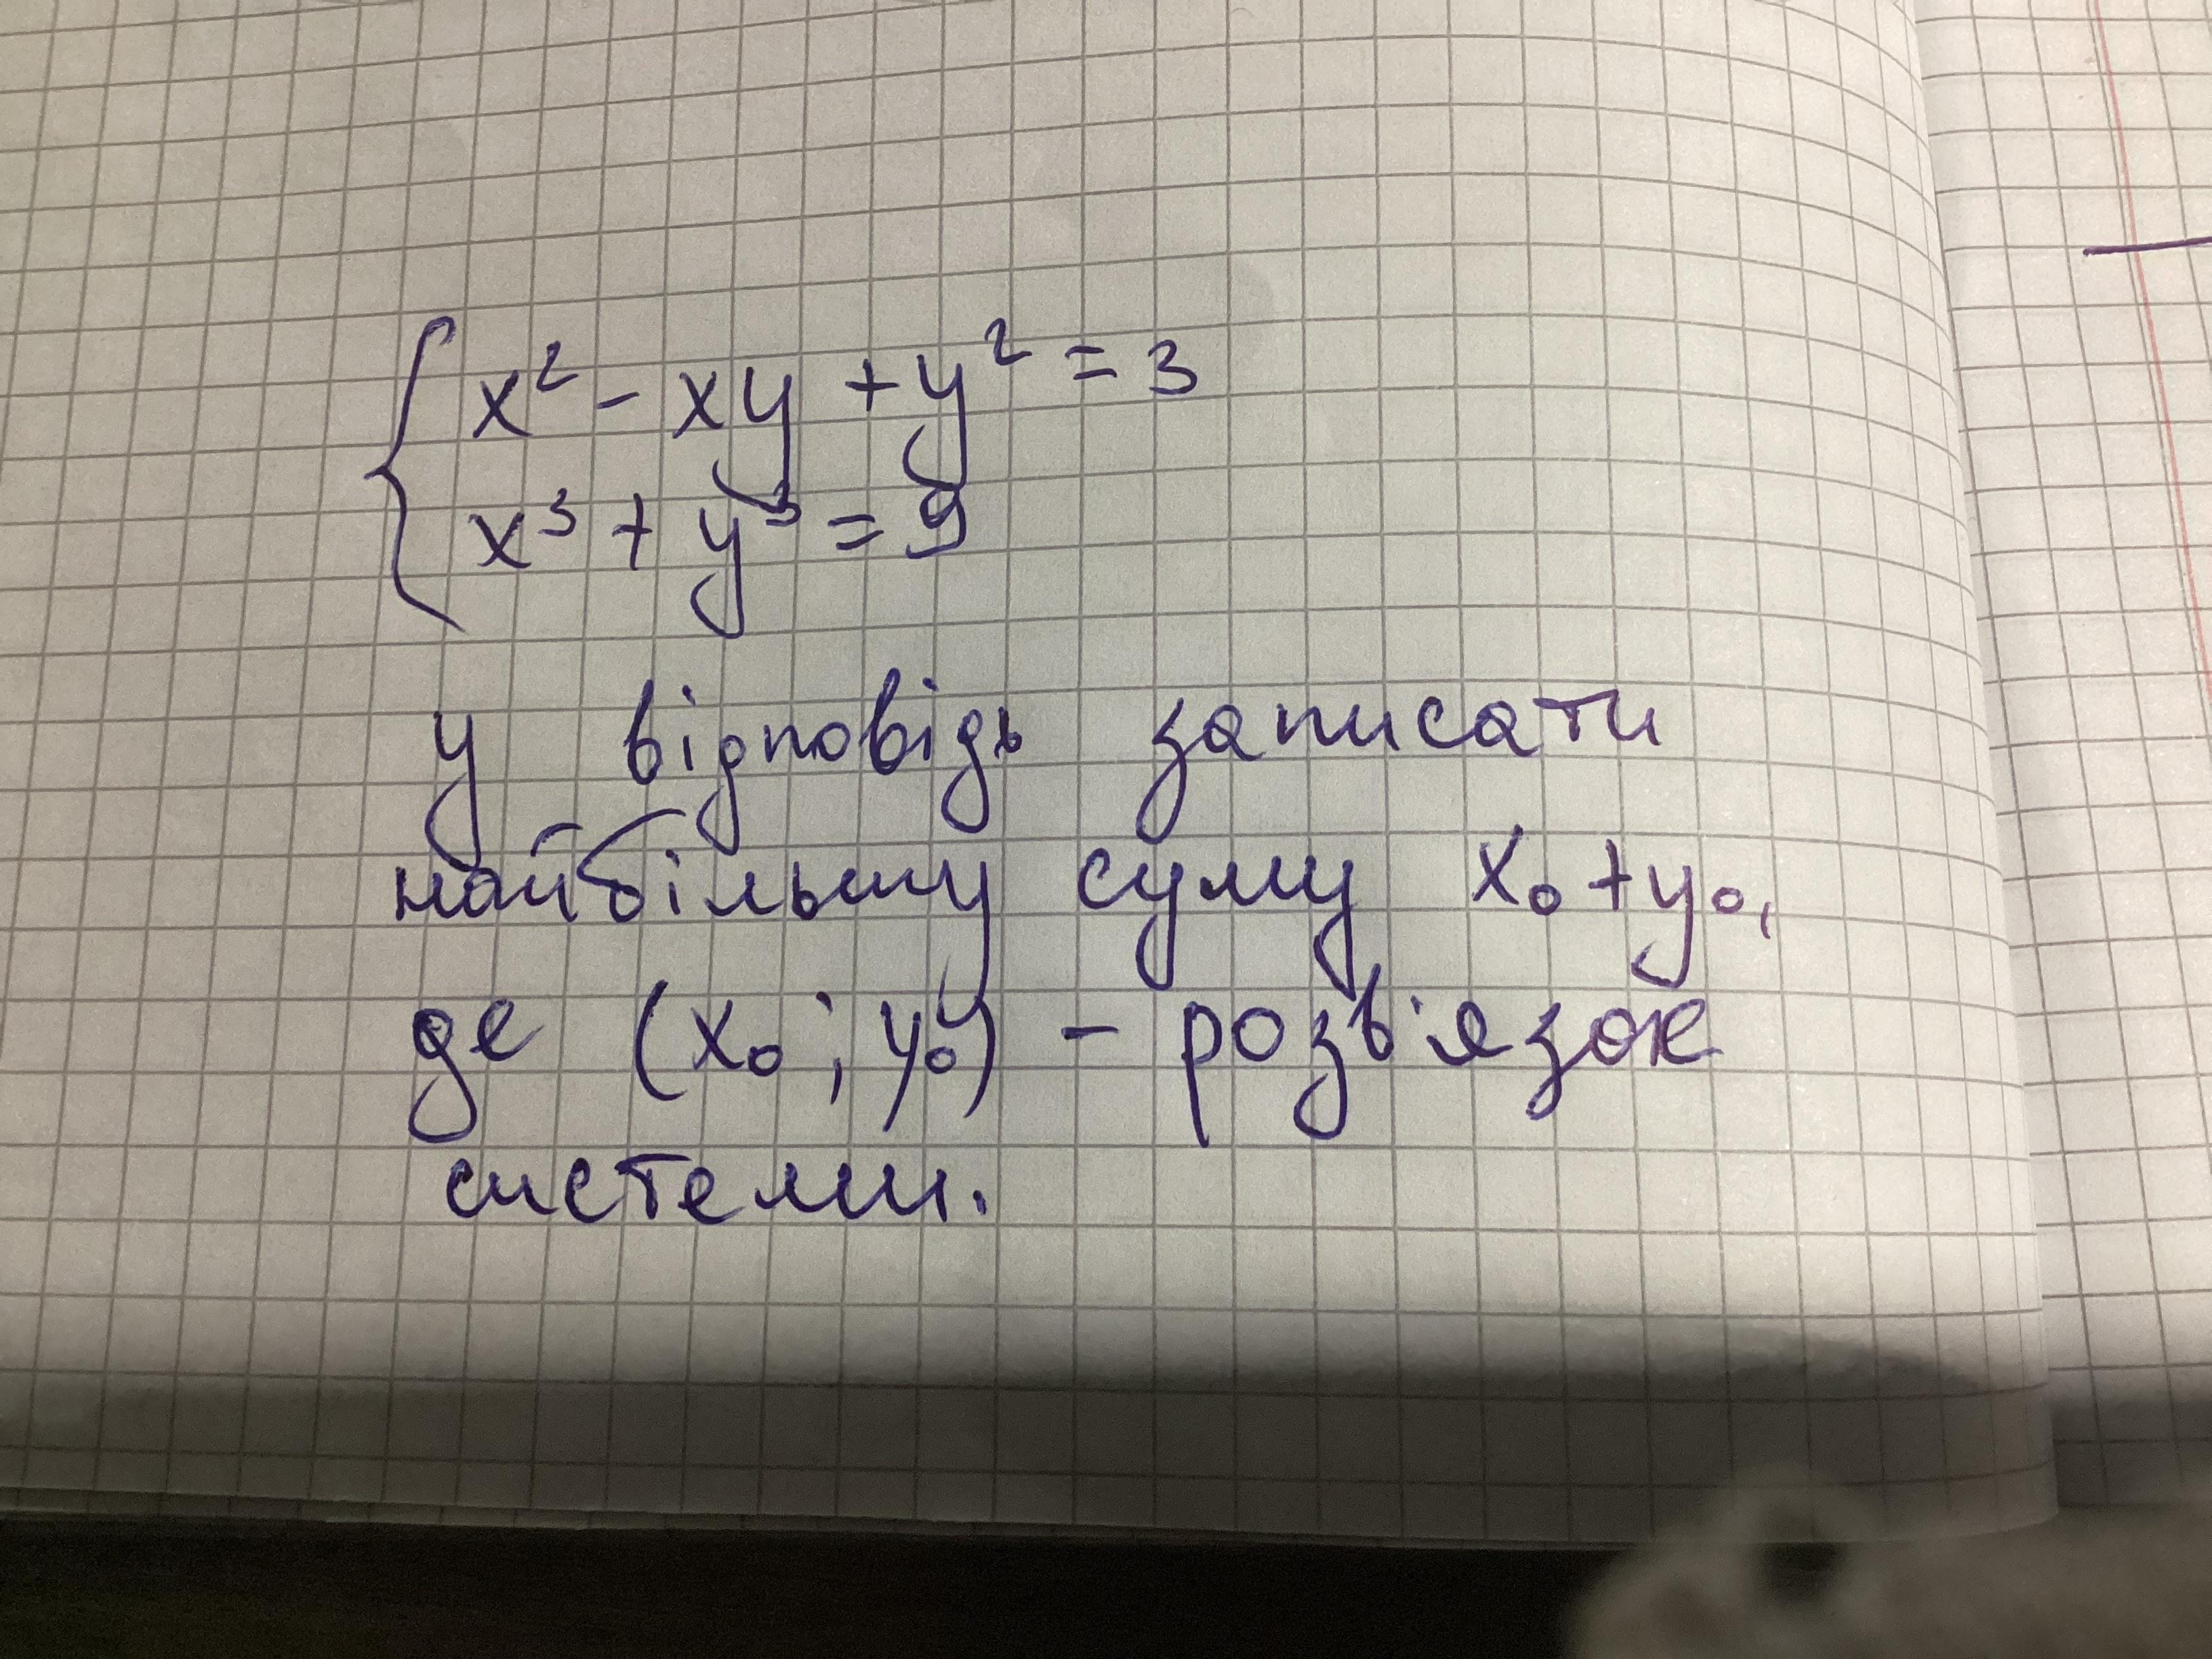 x² - xy + y² = 3
x³ + y³ = 9
у відповідь записати
найбільшу суму x₀ + y₀,
де (x₀; y₀) - розв'язок
системи.